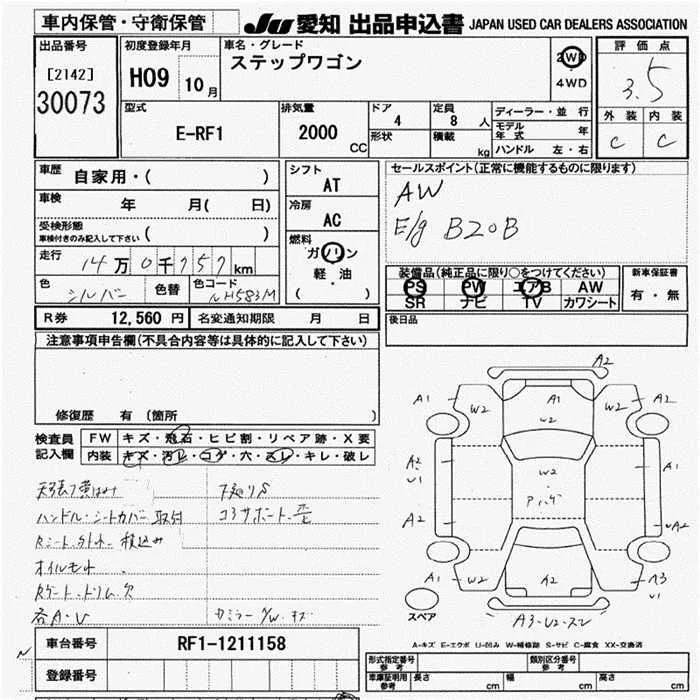 車内保管・守衛保管
JU 愛知 出品申込書 JAPAN USED CAR DEALERS ASSOCIATION
出品番号
[2142]
30073
初度登録年月
H09 10 月
車名・グレード
ステップワゴン
2WD
・
4WD
評価点
3.5
外装 内装
C C
型式
E-RF1
排気量
2000 CC
ドア
4
形状
定員
8 人
積載
kg
ディーラー・並 行
モデル年式 年
ハンドル 左・右
車歴 自家用・( )
車検 年 月( 日)
受検形態
車検付きのみ記入して下さい ( )
走行 14万0千757km
色 シルバー 色替 色コード NH583M
シフト
AT
冷房
AC
燃料
ガソリン
軽・油
( )
セールスポイント(正常に機能するものに限ります)
AW
E/g B20B
装備品(純正品に限り○をつけてください)
PS PW エアB AW
SR ナビ TV カワシート
新車保証書
有・無
後日品
R券 12,560 円 名変通知期限 月 日
注意事項申告欄(不具合内容等は具体的に記入して下さい)
修復歴 有 (箇所 )
検査員
記入欄
FW キズ・飛石・ヒビ割・リペア跡・X要
内装 キズ・汚レ・コゲ・穴・スレ・キレ・破レ
ハンドル・シートカバー取付
下廻りS
コアサポート歪
Rシート外れ 積込み
オイルモレ
Rゲートトリム欠
各A・U
A2
A1 W2 A1 W2 W2 A1
A2 U1 W2 A2
Pパナ
A2 UA2
A1 W2 A2 W2 A3 U1
スペア
A3-U2-スレ
A-キズ E-エクボ U-凹み W-補修跡 S-サビ C-腐食 XX-交換済
車台番号 RF1-1211158
登録番号
形式指定番号 参考
類別区分番号 参考
車庫証明用 参考 長さ cm 幅 cm 高さ cm